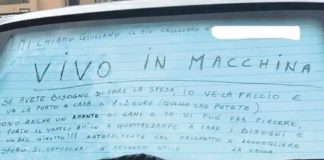 MI CHIAMO GIULIANO IL MIO CELLULARE È
VIVO IN MACCHINA
SE AVETE BISOGNO DI FARE LA SPESA IO VE LA FACCIO E
VE LA PORTO A CASA X 2,3 EURO (QUELLO CHE POTETE).
SONO ANCHE UN AMANTE DI CANI E SE VI PUÒ FAR PIACERE
PORTO IL VOSTRO AMICO A QUATTROZAMPE A FARE I BISOGNI E
UN BEL GIRETTO!!! NATURALMENTE COL SACCHETTO X RACCOGLIERE
SPERO DI CONOSCERVI E RENDERMI UTILE